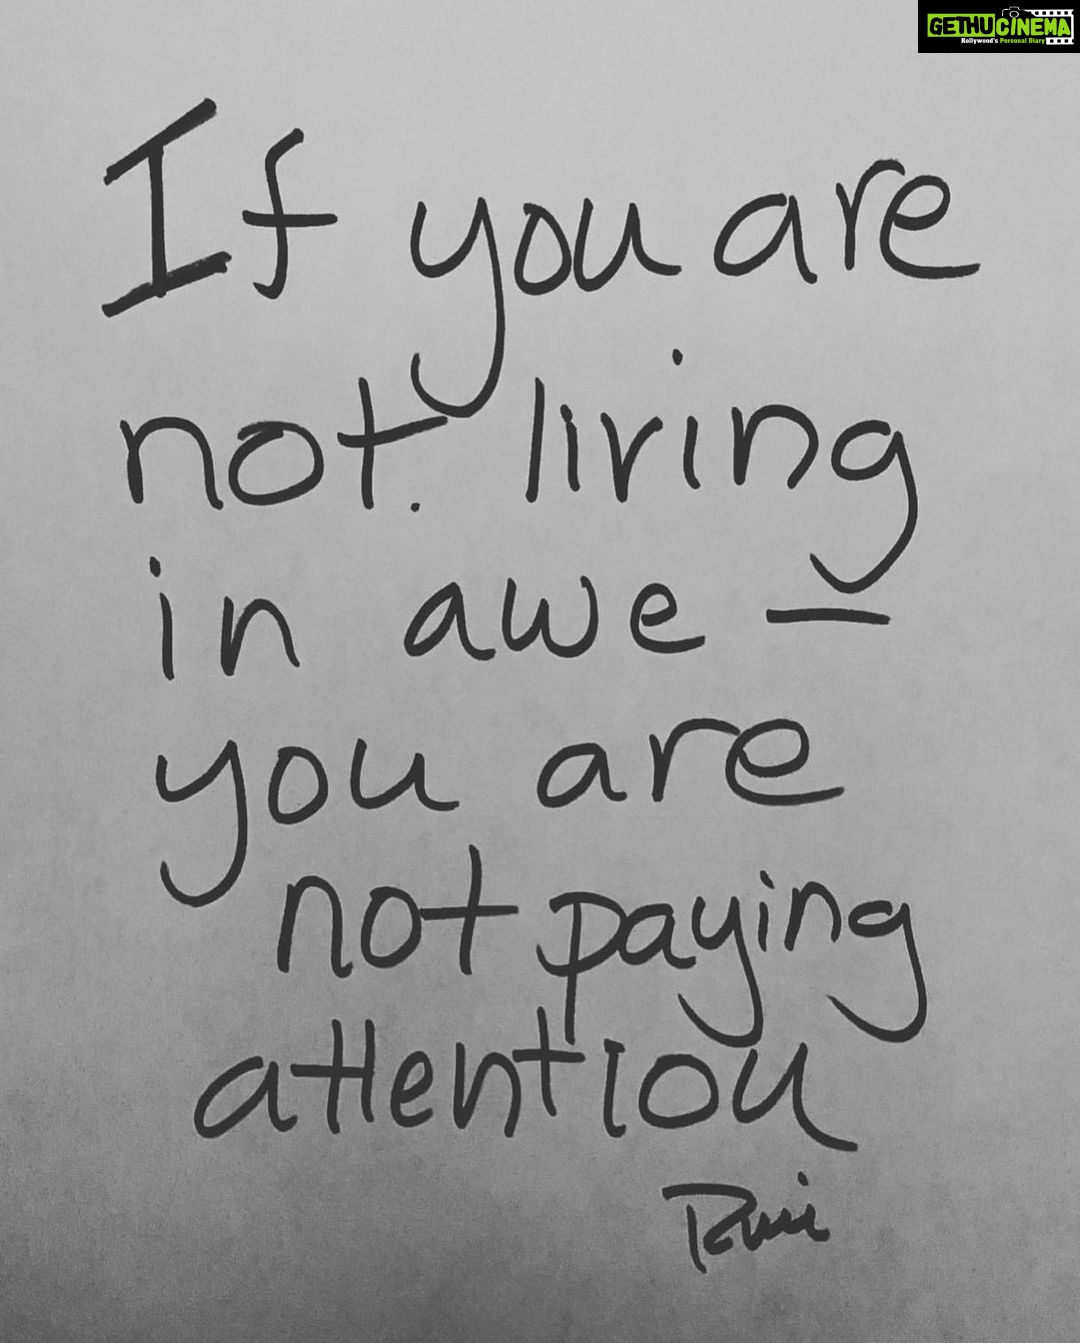 GETHUCINEMA
Kollywood's Personal Diary
If you are
not. living
in awe —
you are
not paying
attention